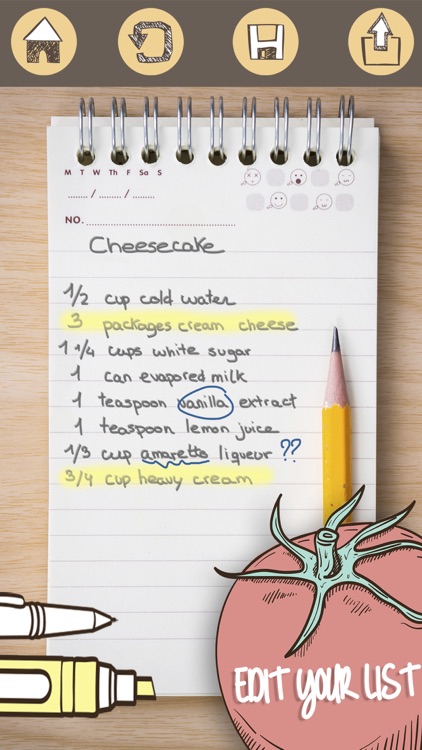 M T W Th F Sa S
....... / ........ / ........
NO. ..................................................
Cheesecake
1/2 cup cold water
3 packages cream cheese
1 1/4 cups white sugar
1 can evapored milk
1 teaspoon vanilla extract
1 teaspoon lemon juice
1/3 cup amaretto liqueur ??
3/4 cup heavy cream
EDIT YOUR LIST